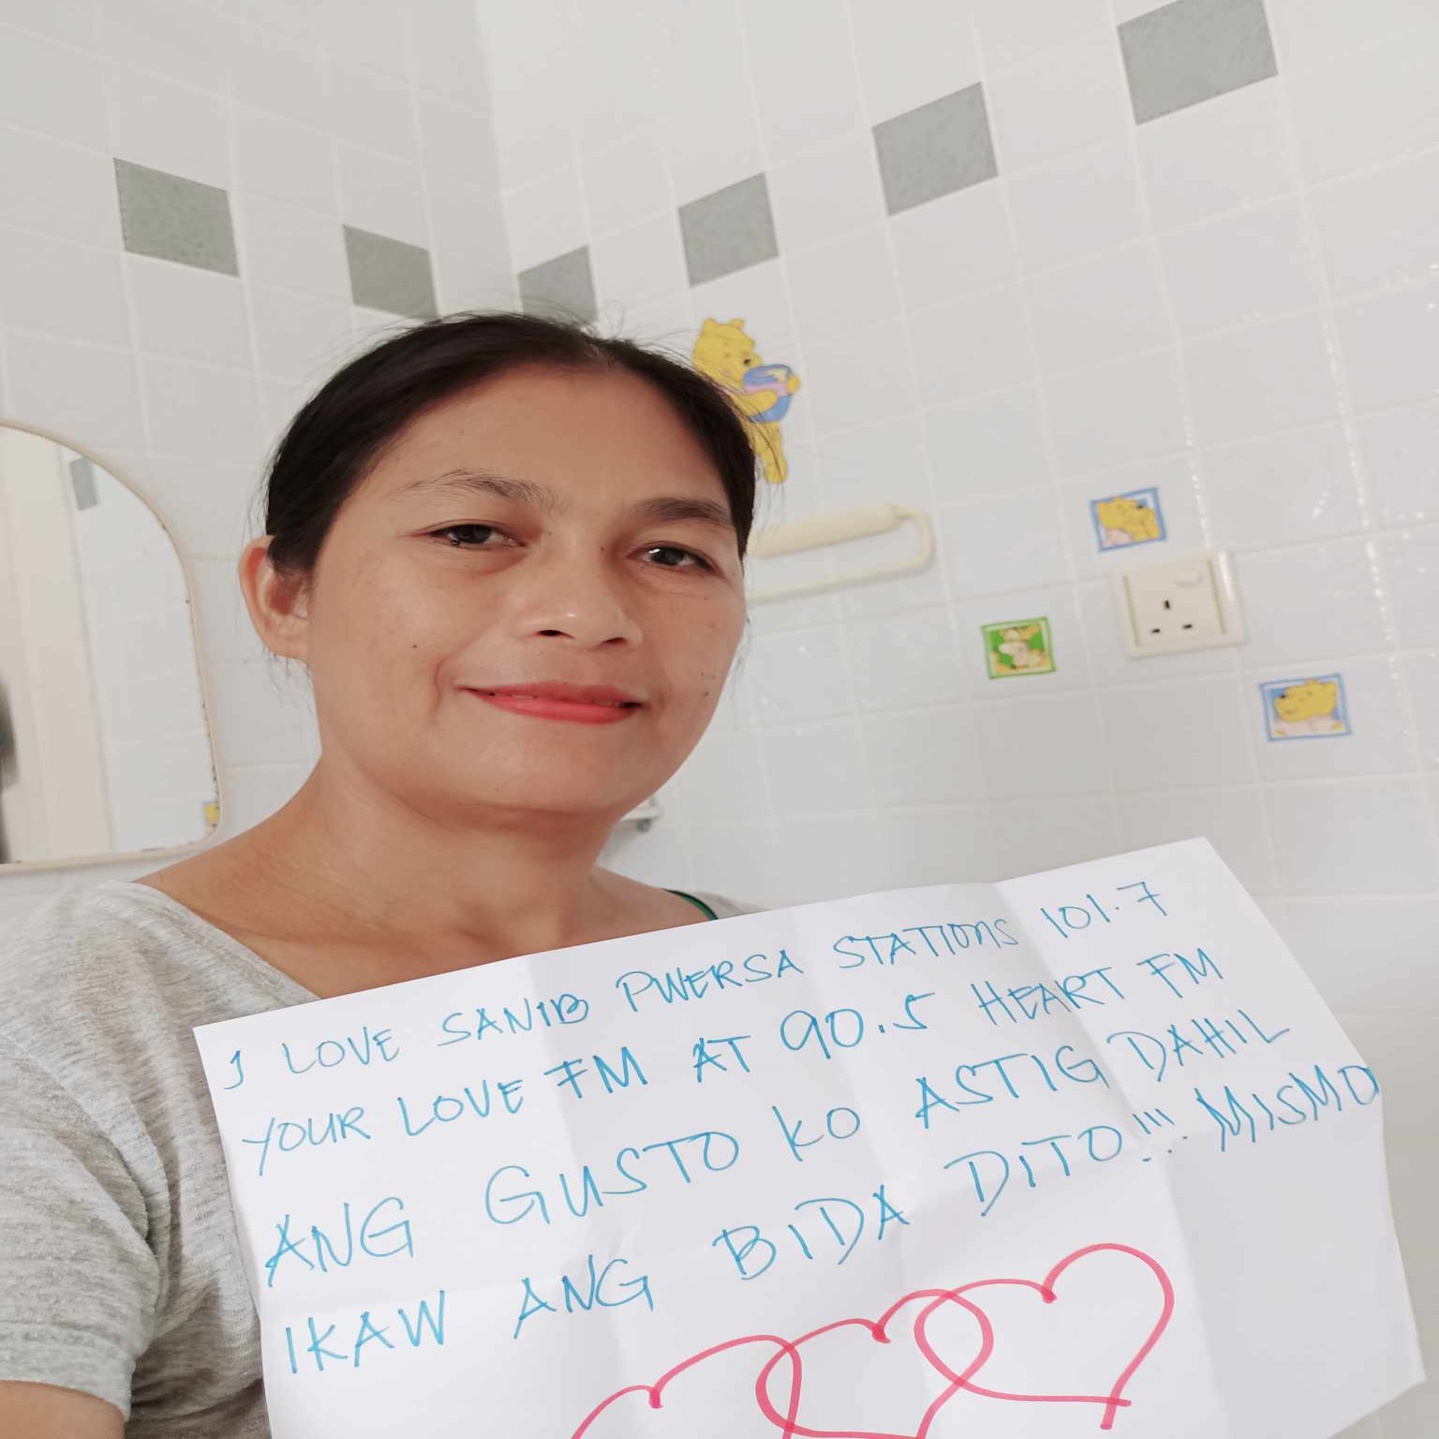 I LOVE SANIB PWERSA STATIONS 101.7
YOUR LOVE FM AT 90.5 HEART FM
ANG GUSTO KO ASTIG DAHIL
IKAW ANG BIDA DITO!!! MISMO